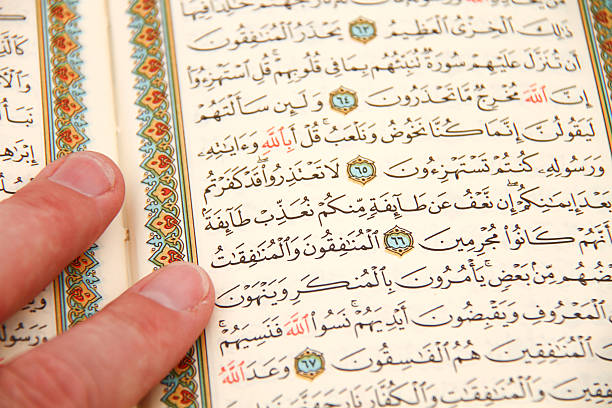 ذَٰلِكَ ٱلْخِزْىُ ٱلْعَظِيمُ ٦٣ يَحْذَرُ ٱلْمُنَٰفِقُونَ
أَن تُنَزَّلَ عَلَيْهِمْ سُورَةٌ تُنَبِّئُهُم بِمَا فِى قُلُوبِهِمْ ۚ قُلِ ٱسْتَهْزِءُوٓا۟
إِنَّ ٱللَّهَ مُخْرِجٌ مَّا تَحْذَرُونَ ٦٤ وَلَئِن سَأَلْتَهُمْ
لَيَقُولُنَّ إِنَّمَا كُنَّا نَخُوضُ وَنَلْعَبُ ۚ قُلْ أَبِٱللَّهِ وَءَايَٰتِهِۦ
وَرَسُولِهِۦ كُنتُمْ تَسْتَهْزِءُونَ ٦٥ لَا تَعْتَذِرُوا۟ قَدْ كَفَرْتُم
بَعْدَ إِيمَٰنِكُمْ ۚ إِن نَّعْفُ عَن طَآئِفَةٍ مِّنكُمْ نُعَذِّبْ طَآئِفَةًۢ
بِأَنَّهُمْ كَانُوا۟ مُجْرِمِينَ ٦٦ ٱلْمُنَٰفِقُونَ وَٱلْمُنَٰفِقَٰتُ
مِّنۢ بَعْضٍ ۚ يَأْمُرُونَ بِٱلْمُنكَرِ وَيَنْهَوْنَ
ٱلْمَعْرُوفِ وَيَقْبِضُونَ أَيْدِيَهُمْ ۚ نَسُوا۟ ٱللَّهَ فَنَسِيَهُمْ ۗ
ٱلْمُنَٰفِقِينَ هُمُ ٱلْفَٰسِقُونَ ٦٧ وَعَدَ ٱللَّهُ
وَٱلْمُنَٰفِقَٰتِ وَٱلْكُفَّارَ نَارَ جَهَنَّمَ